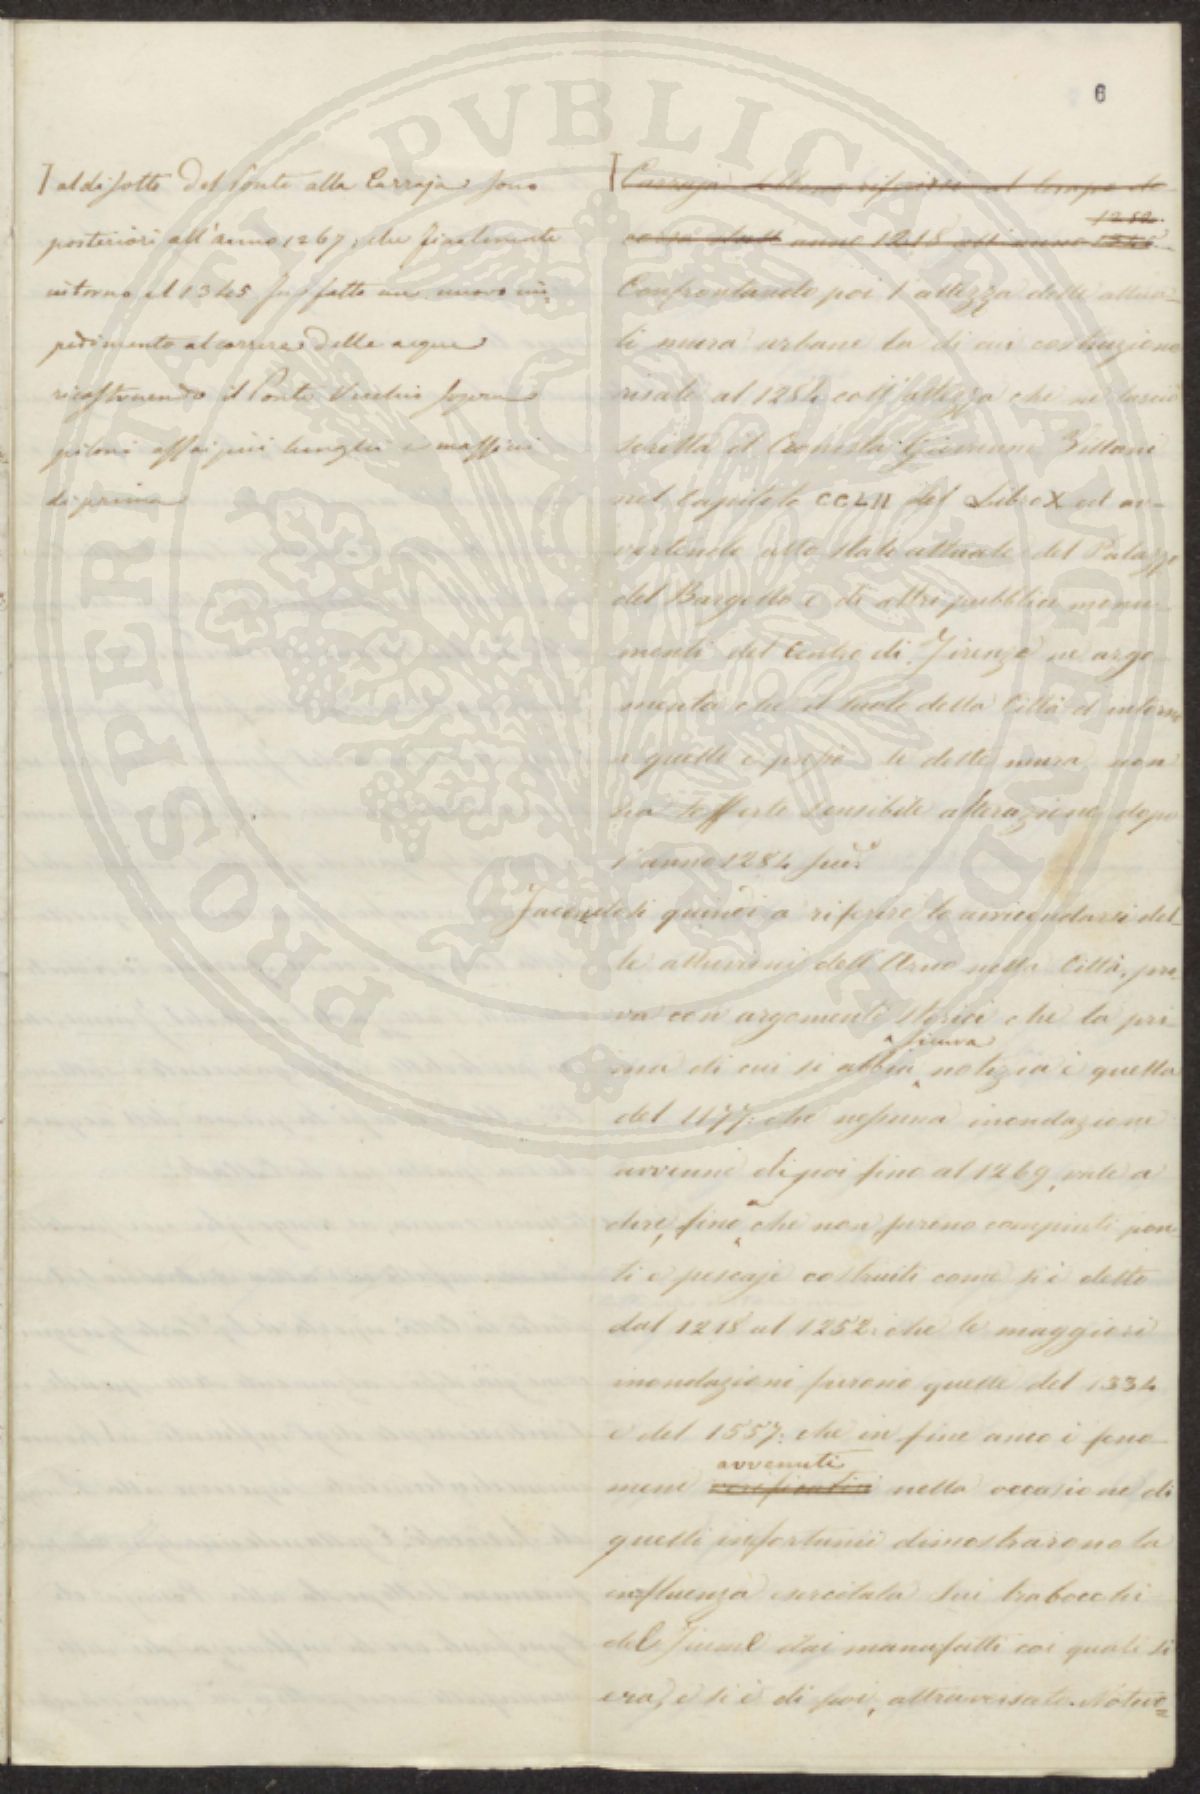 6
al di sotto del Ponte alla Carraja sono
posteriori all'anno 1267; che finalmente
intorno al 1345 fu fatto un nuovo im-
pedimento al correre delle acque
ricostruendo il Ponte Vecchio sopra
piloni assai più lunghi e massicci
di prima
Carraja debbono riferirsi al tempo de
1252.
anno 1218 all'anno
Confrontando poi l'altezza delle attua-
li mura urbane la di cui costruzione
risale al 1284 coll'altezza che ne lasciò
scritta il Cronista Giovanni Villani
nel Capitolo CCLII del Libro X ed av-
vertendo allo stato attuale del Palazzo
del Bargello e di altri pubblici monu-
menti del centro di Firenze ne argo-
menta che il suolo della Città d'intorno
a quelli e presso le dette mura non
ha sofferto sensibile alterazione dopo
l'anno 1284
Facendosi quindi a riferire lo avvicendarsi del-
le alluvioni dell'Arno nella Città, pro-
va con argomenti storici che la pri-
sicura
ma di cui si abbia notizia è quella
del 1177: che nessuna inondazione
avvenne di poi fino al 1269, vale a
a
dire, fino che non furono compiuti pon-
ti e pescaje costruiti come si è detto
dal 1218 al 1252: che le maggiori
inondazioni furono quelle del 1334
e del 1557: che in fine anco i feno-
avvenuti
meni verificatisi nella occasione di
questi infortunii dimostrarono la
influenza esercitata sui trabocchi
del Fiume dai manufatti coi quali si
era, e si è di poi, attraversato. Notevo=